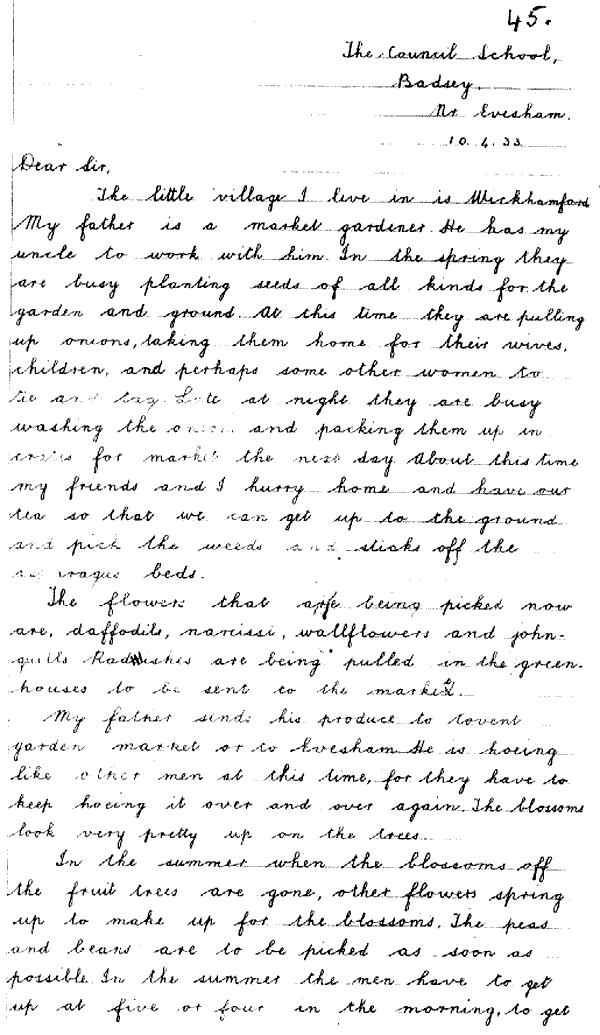 45.
The Council School,
Badsey.
Nr Evesham.
10.4.33
Dear Sir,
The little village I live in is Wickhamford
My father is a market gardener. He has my
uncle to work with him. In the spring they
are busy planting seeds of all kinds for the
garden and ground. At this time they are pulling
up onions, taking them home for their wives,
children, and perhaps some other women to
tie and tag. Late at night they are busy
washing the and packing them up in
crates for market the next day. About this time
my friends and I hurry home and have our
tea so that we can get up to the ground
and pick the weeds and sticks off the
beds.
The flowers that are being picked now
are, daffodils, narcissi, wallflowers and john-
quills Radishes are being pulled in the green-
houses to be sent to the market.
My father sends his produce to Covent
garden market or to Evesham. He is hoeing
like other men at this time, for they have to
keep hoeing it over and over again. The blossoms
look very pretty up on the trees.
In the summer when the blossoms off
the fruit trees are gone, other flowers spring
up to make up for the blossoms. The peas
and beans are to be picked as soon as
possible. In the summer the men have to get
up at five or four in the morning, to get